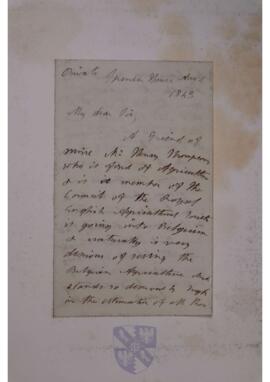 Private Spencer House Aug
1843
My dear Sir,
A friend of
mine Mr Henry Thompson
who is fond of Agriculture
& is a member of the
Council of the Royal
English Agricultural
is going into Belgium
& naturally is very
desirous of seeing the
Belgian Agriculture
stands so deservedly high
in the estimation of all